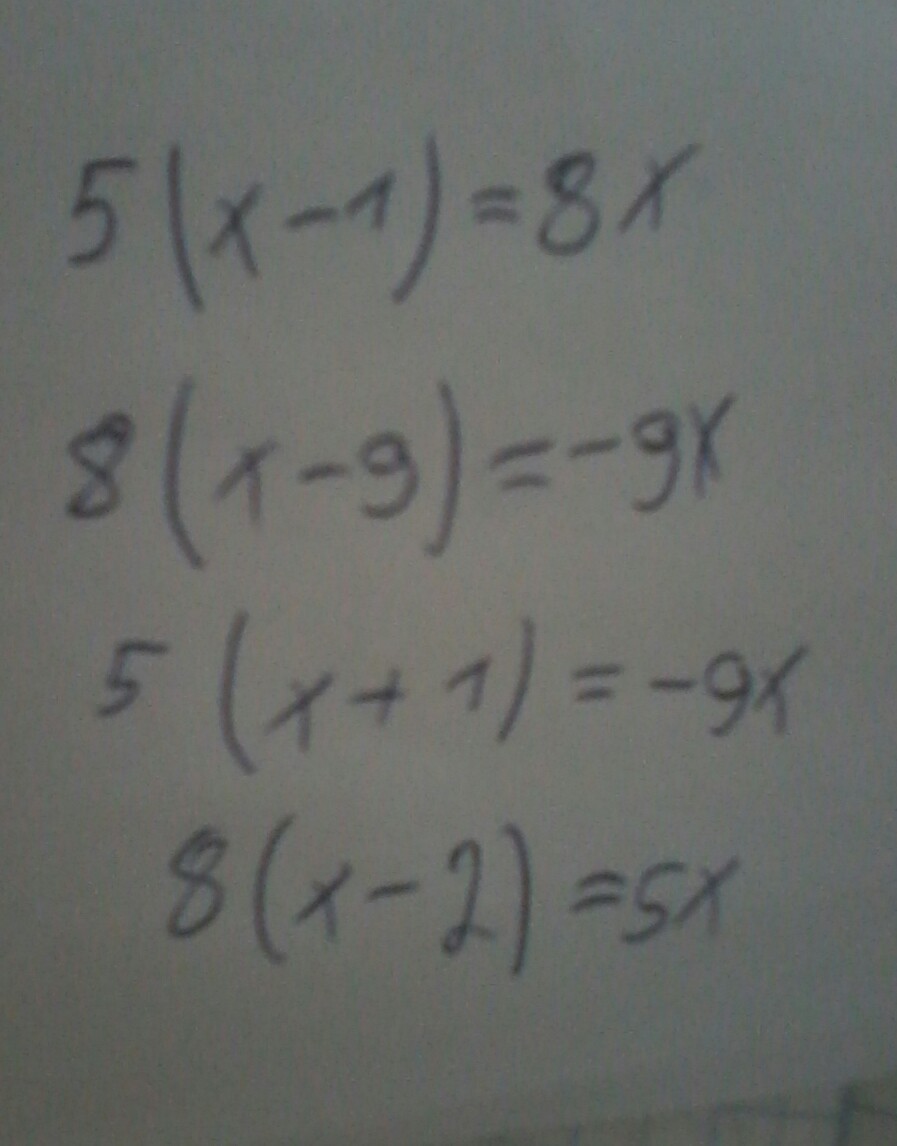 5(x-1)=8x
8(x-9)=-9x
5(x+1)=-9x
8(x-2)=5x